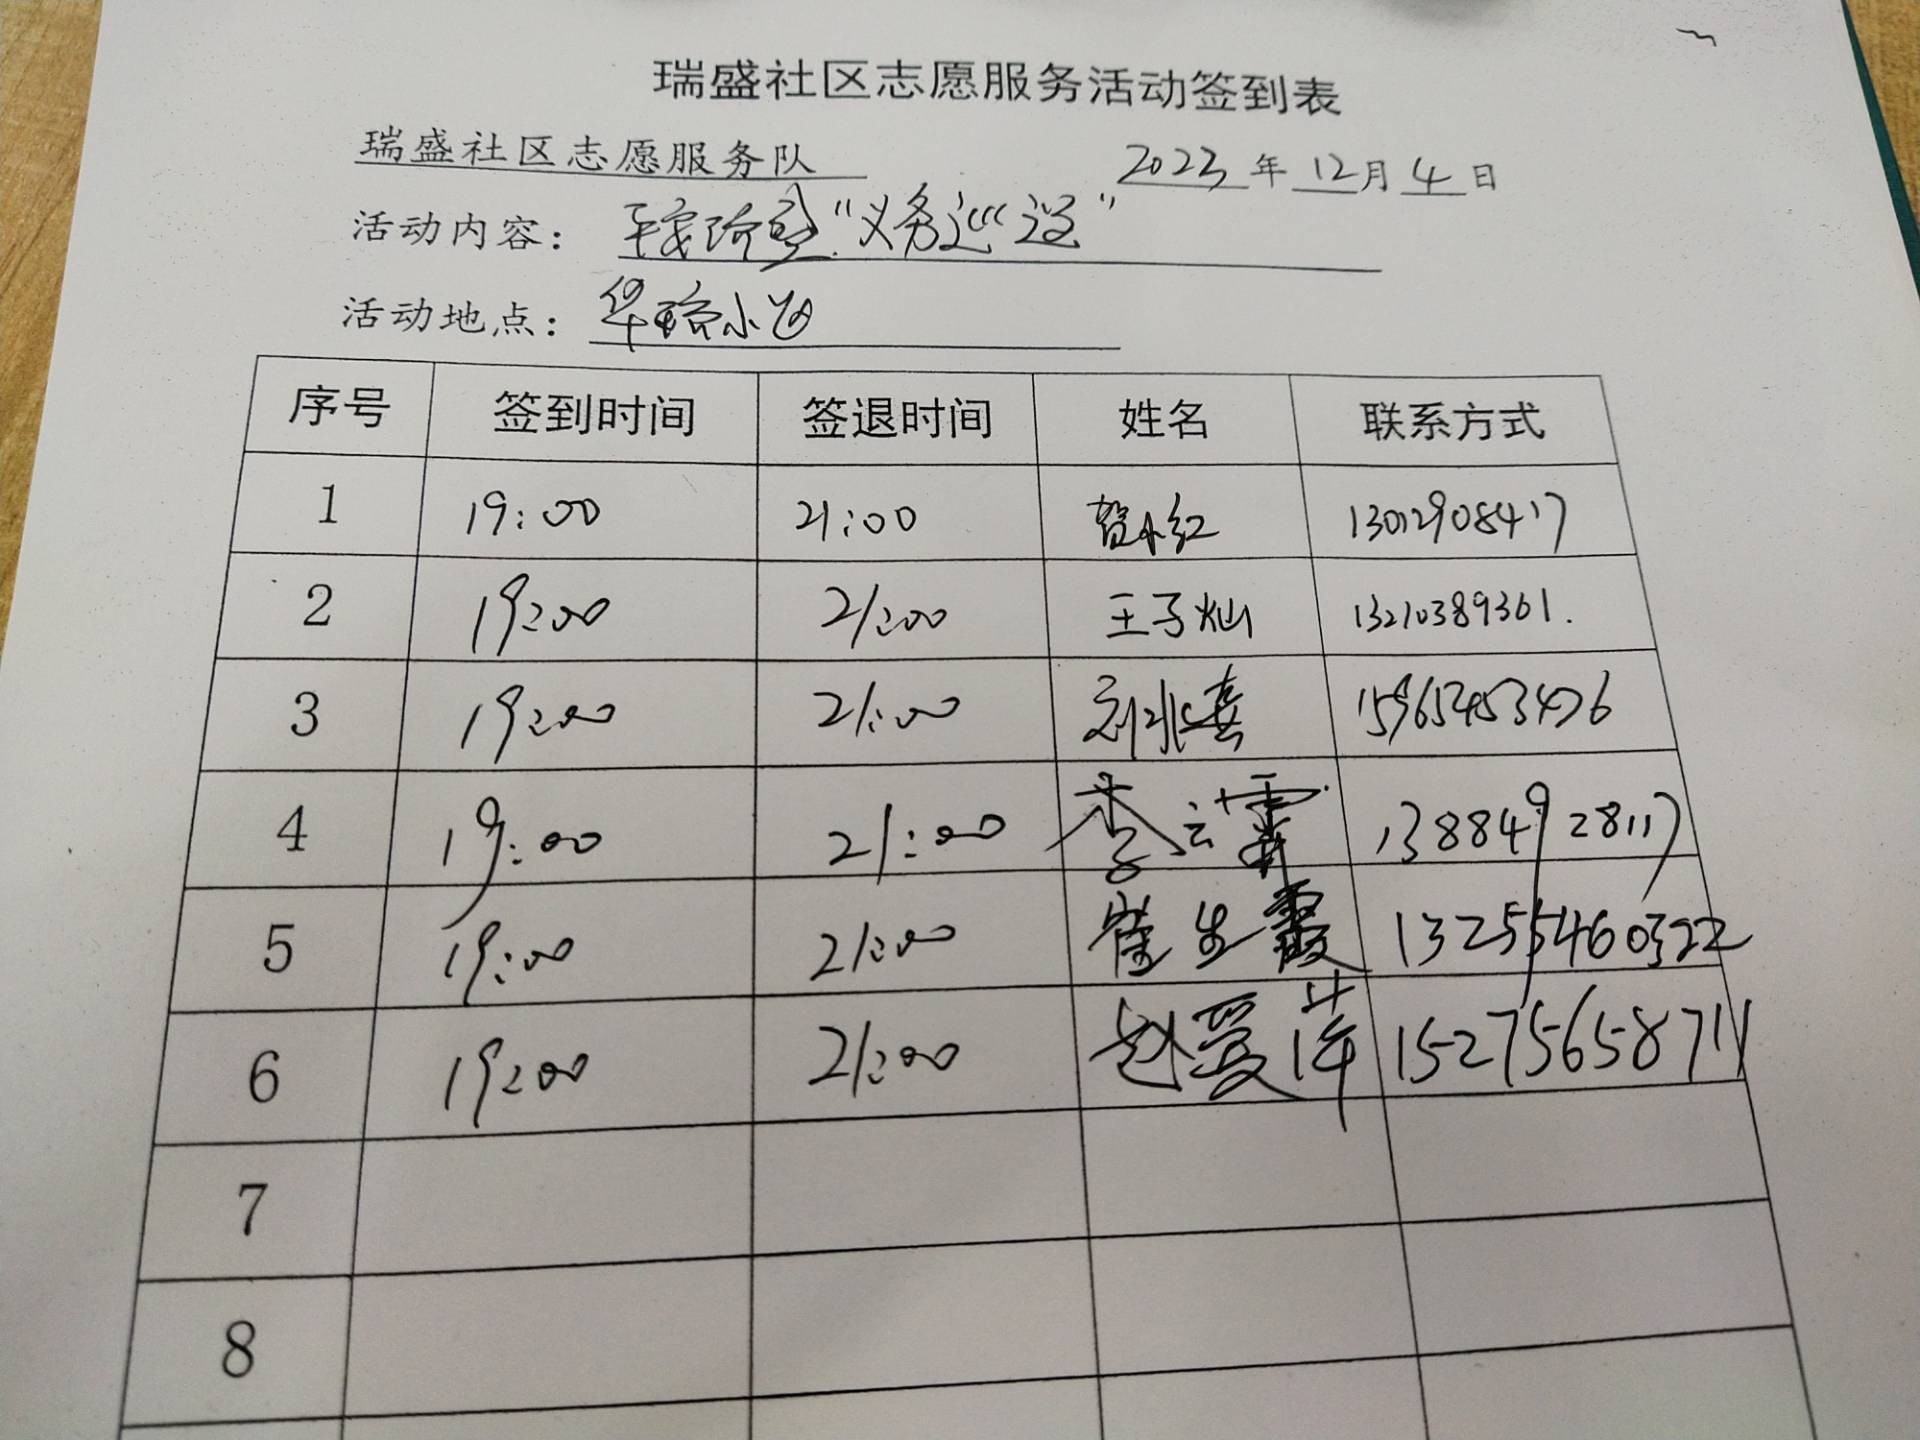 瑞盛社区志愿服务活动签到表
瑞盛社区志愿服务队 2023年12月4日
活动内容: "义务巡逻"
活动地点: 华小区
序号 签到时间 签退时间 姓名 联系方式
1 19:00 21:00 贺小红 13012908417
2 19:00 21:00 王子灿 13210389361.
3 19:00 21:00 刘兆喜 15965453476
4 19:00 21:00 李云霄 13884928117
5 19:00 21:00 崔生霞 13255460322
6 19:00 21:00 赵爱萍 15275658711
7
8